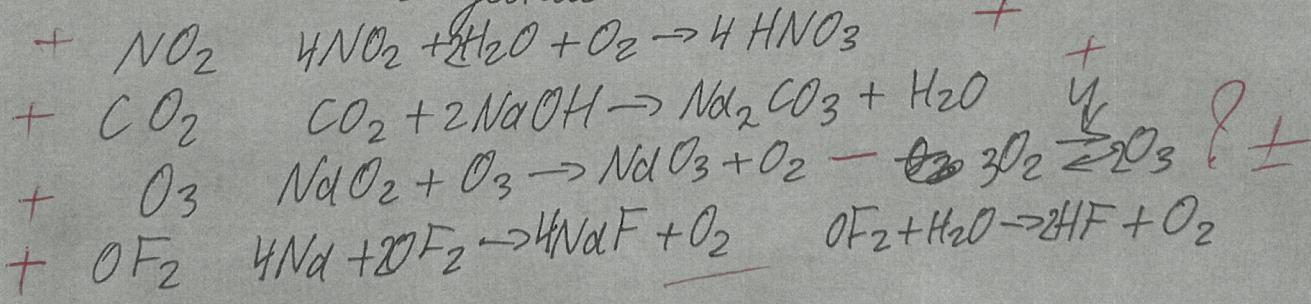 + NO₂ 4NO₂ + 2H₂O + O₂ → 4HNO₃ +
+ CO₂ CO₂ + 2NaOH → Na₂CO₃ + H₂O +
+ O₃ NaO₂ + O₃ → NaO₃ + O₂ — 3O₂ ⇄ 2O₃ ? ±
+ OF₂ 4Na + 2OF₂ → 4NaF + O₂ OF₂ + H₂O → 2HF + O₂